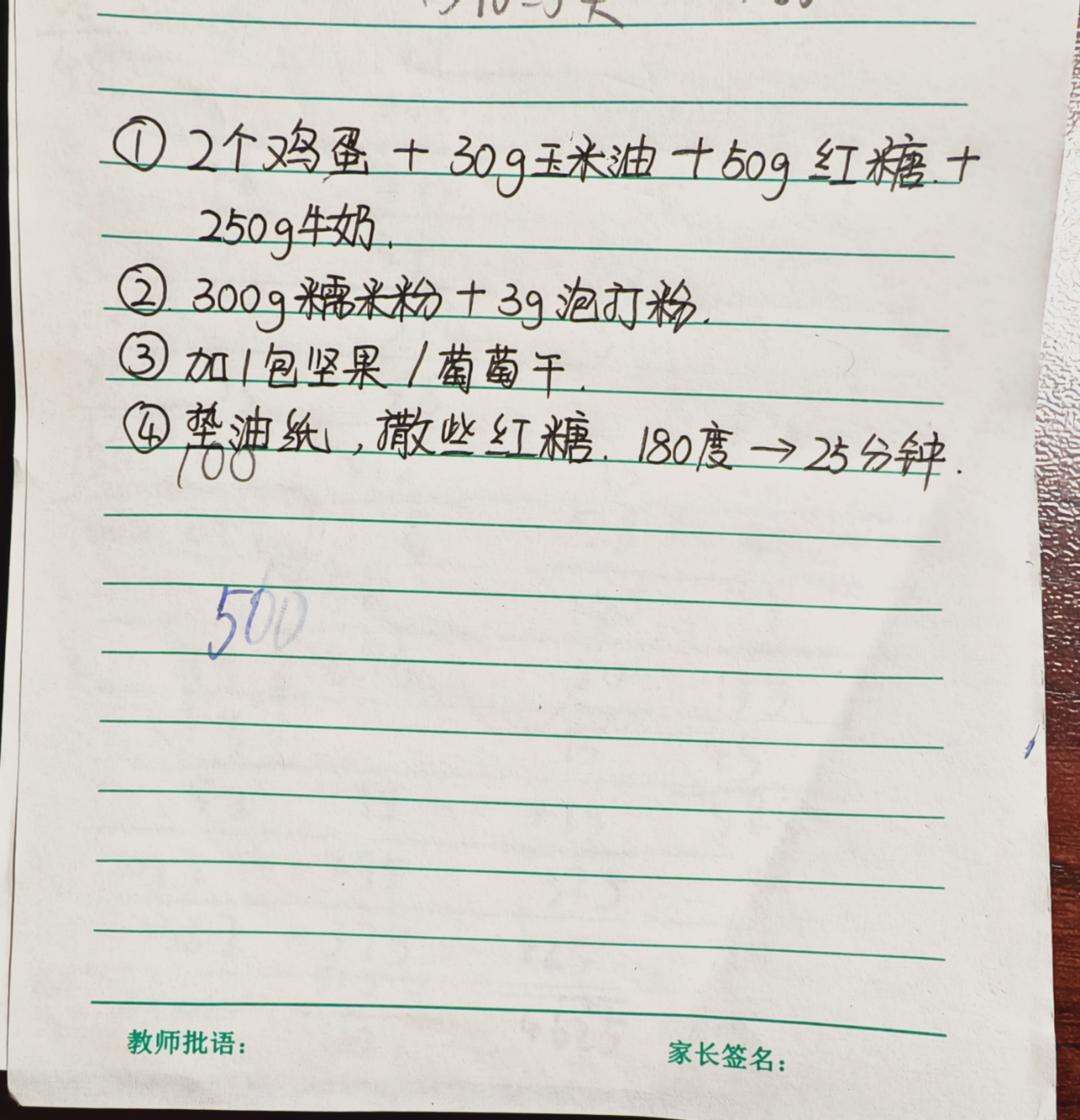 ① 2个鸡蛋 + 30g玉米油 + 50g 红糖. +
250g牛奶.
② 300g糯米粉 + 3g泡打粉.
③ 加1包坚果 / 葡萄干.
④ 垫油纸, 撒些红糖. 180度 → 25分钟.
100
500
教师批语: 家长签名: